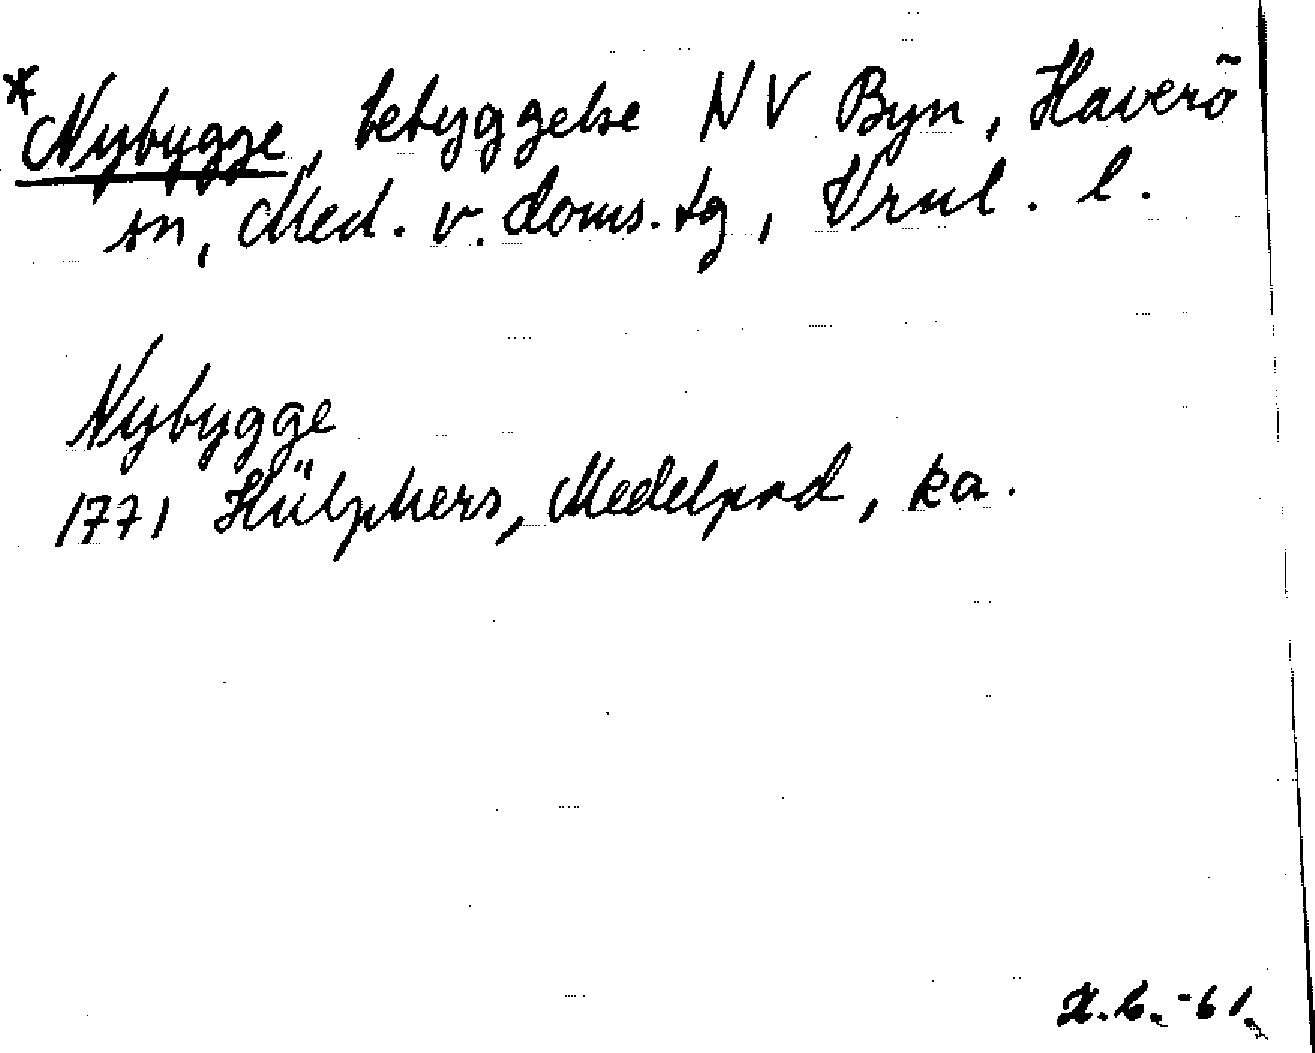 *Nybygge, bebyggelse NV Byn, Haverö
sn, Med. v. doms. tg, Vrnl. l.
Nybygge
1771 Hülphers, Medelpad, ka.
-61.